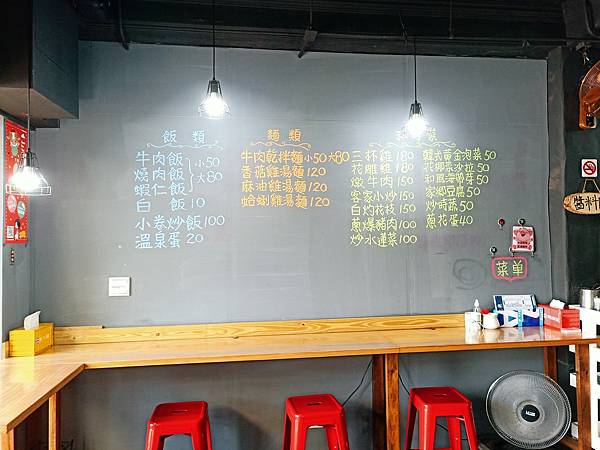 飯類
牛肉飯
燒肉飯
蝦仁飯
小50
大80
白飯 10
小卷炒飯100
溫泉蛋 20
麵類
牛肉乾拌麵小50大80
香菇雞湯麵120
麻油雞湯麵120
蛤蜊雞湯麵120
三杯雞180
花雕雞180
燉牛肉150
客家小炒150
白灼花枝150
蔥爆豬肉100
炒水蓮菜100
韓式黃金泡菜50
花椰菜沙拉50
和風海帶芽50
家鄉豆腐50
炒時蔬50
蔥花蛋40
菜单
醬料